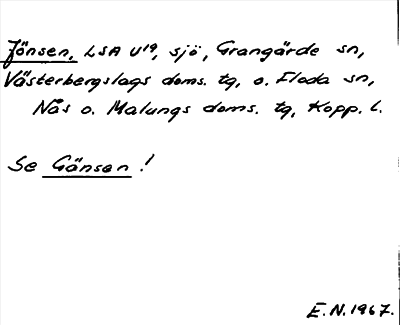 Jönsen, LSA U¹⁹, sjö, Grangärde sn,
Västerbergslags doms. tg, o. Floda sn,
Nås o. Malungs doms. tg, Kopp. l.
Se Gänsen !
E.N. 1967.